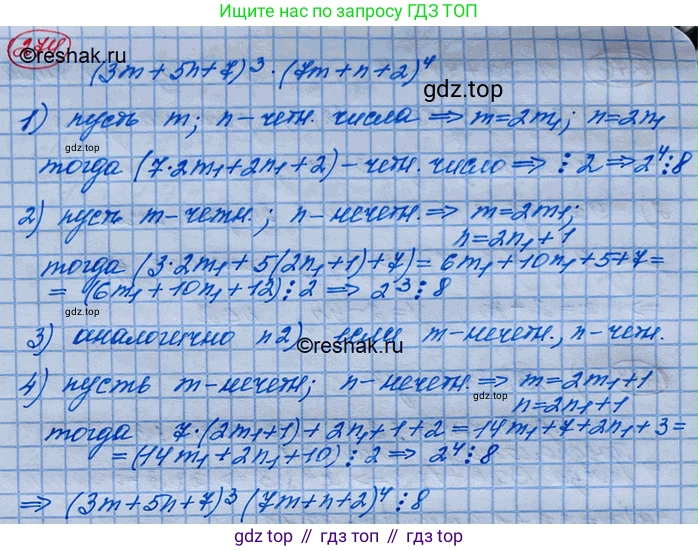 Ищете нас по запросу ГДЗ ТОП
274
©reshak.ru
(3m + 5n + 7)³ · (7m + n + 2)⁴
gdz.top
1) пусть m; n – четн. числа ⇒ m = 2m₁; n = 2n₁
тогда (7·2m₁ + 2n₁ + 2) – четн. число ⇒ ⋮ 2 ⇒ 2⁴ ⋮ 8
2) пусть m – четн.; n – нечетн. ⇒ m = 2m₁;
n = 2n₁ + 1
тогда (3·2m₁ + 5(2n₁ + 1) + 7) = 6m₁ + 10n₁ + 5 + 7 =
= (6m₁ + 10n₁ + 12) ⋮ 2 ⇒ 2³ ⋮ 8
gdz.top
3) аналогично п 2) если m – нечетн., n – четн.
©reshak.ru
4) пусть m – нечетн; n – нечетн. ⇒ m = 2m₁ + 1
n = 2n₁ + 1
тогда 7·(2m₁ + 1) + 2n₁ + 1 + 2 = 14m₁ + 7 + 2n₁ + 3 =
= (14m₁ + 2n₁ + 10) ⋮ 2 ⇒ 2⁴ ⋮ 8
⇒ (3m + 5n + 7)³ (7m + n + 2)⁴ ⋮ 8
gdz.top // гдз.топ // gdz.top